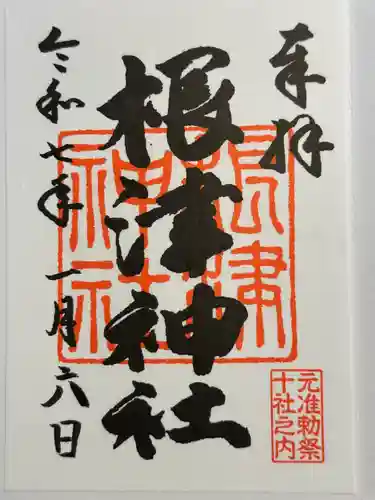 奉拝
根津神社
根津神社
令和七年一月六日
元准勅祭
十社之内